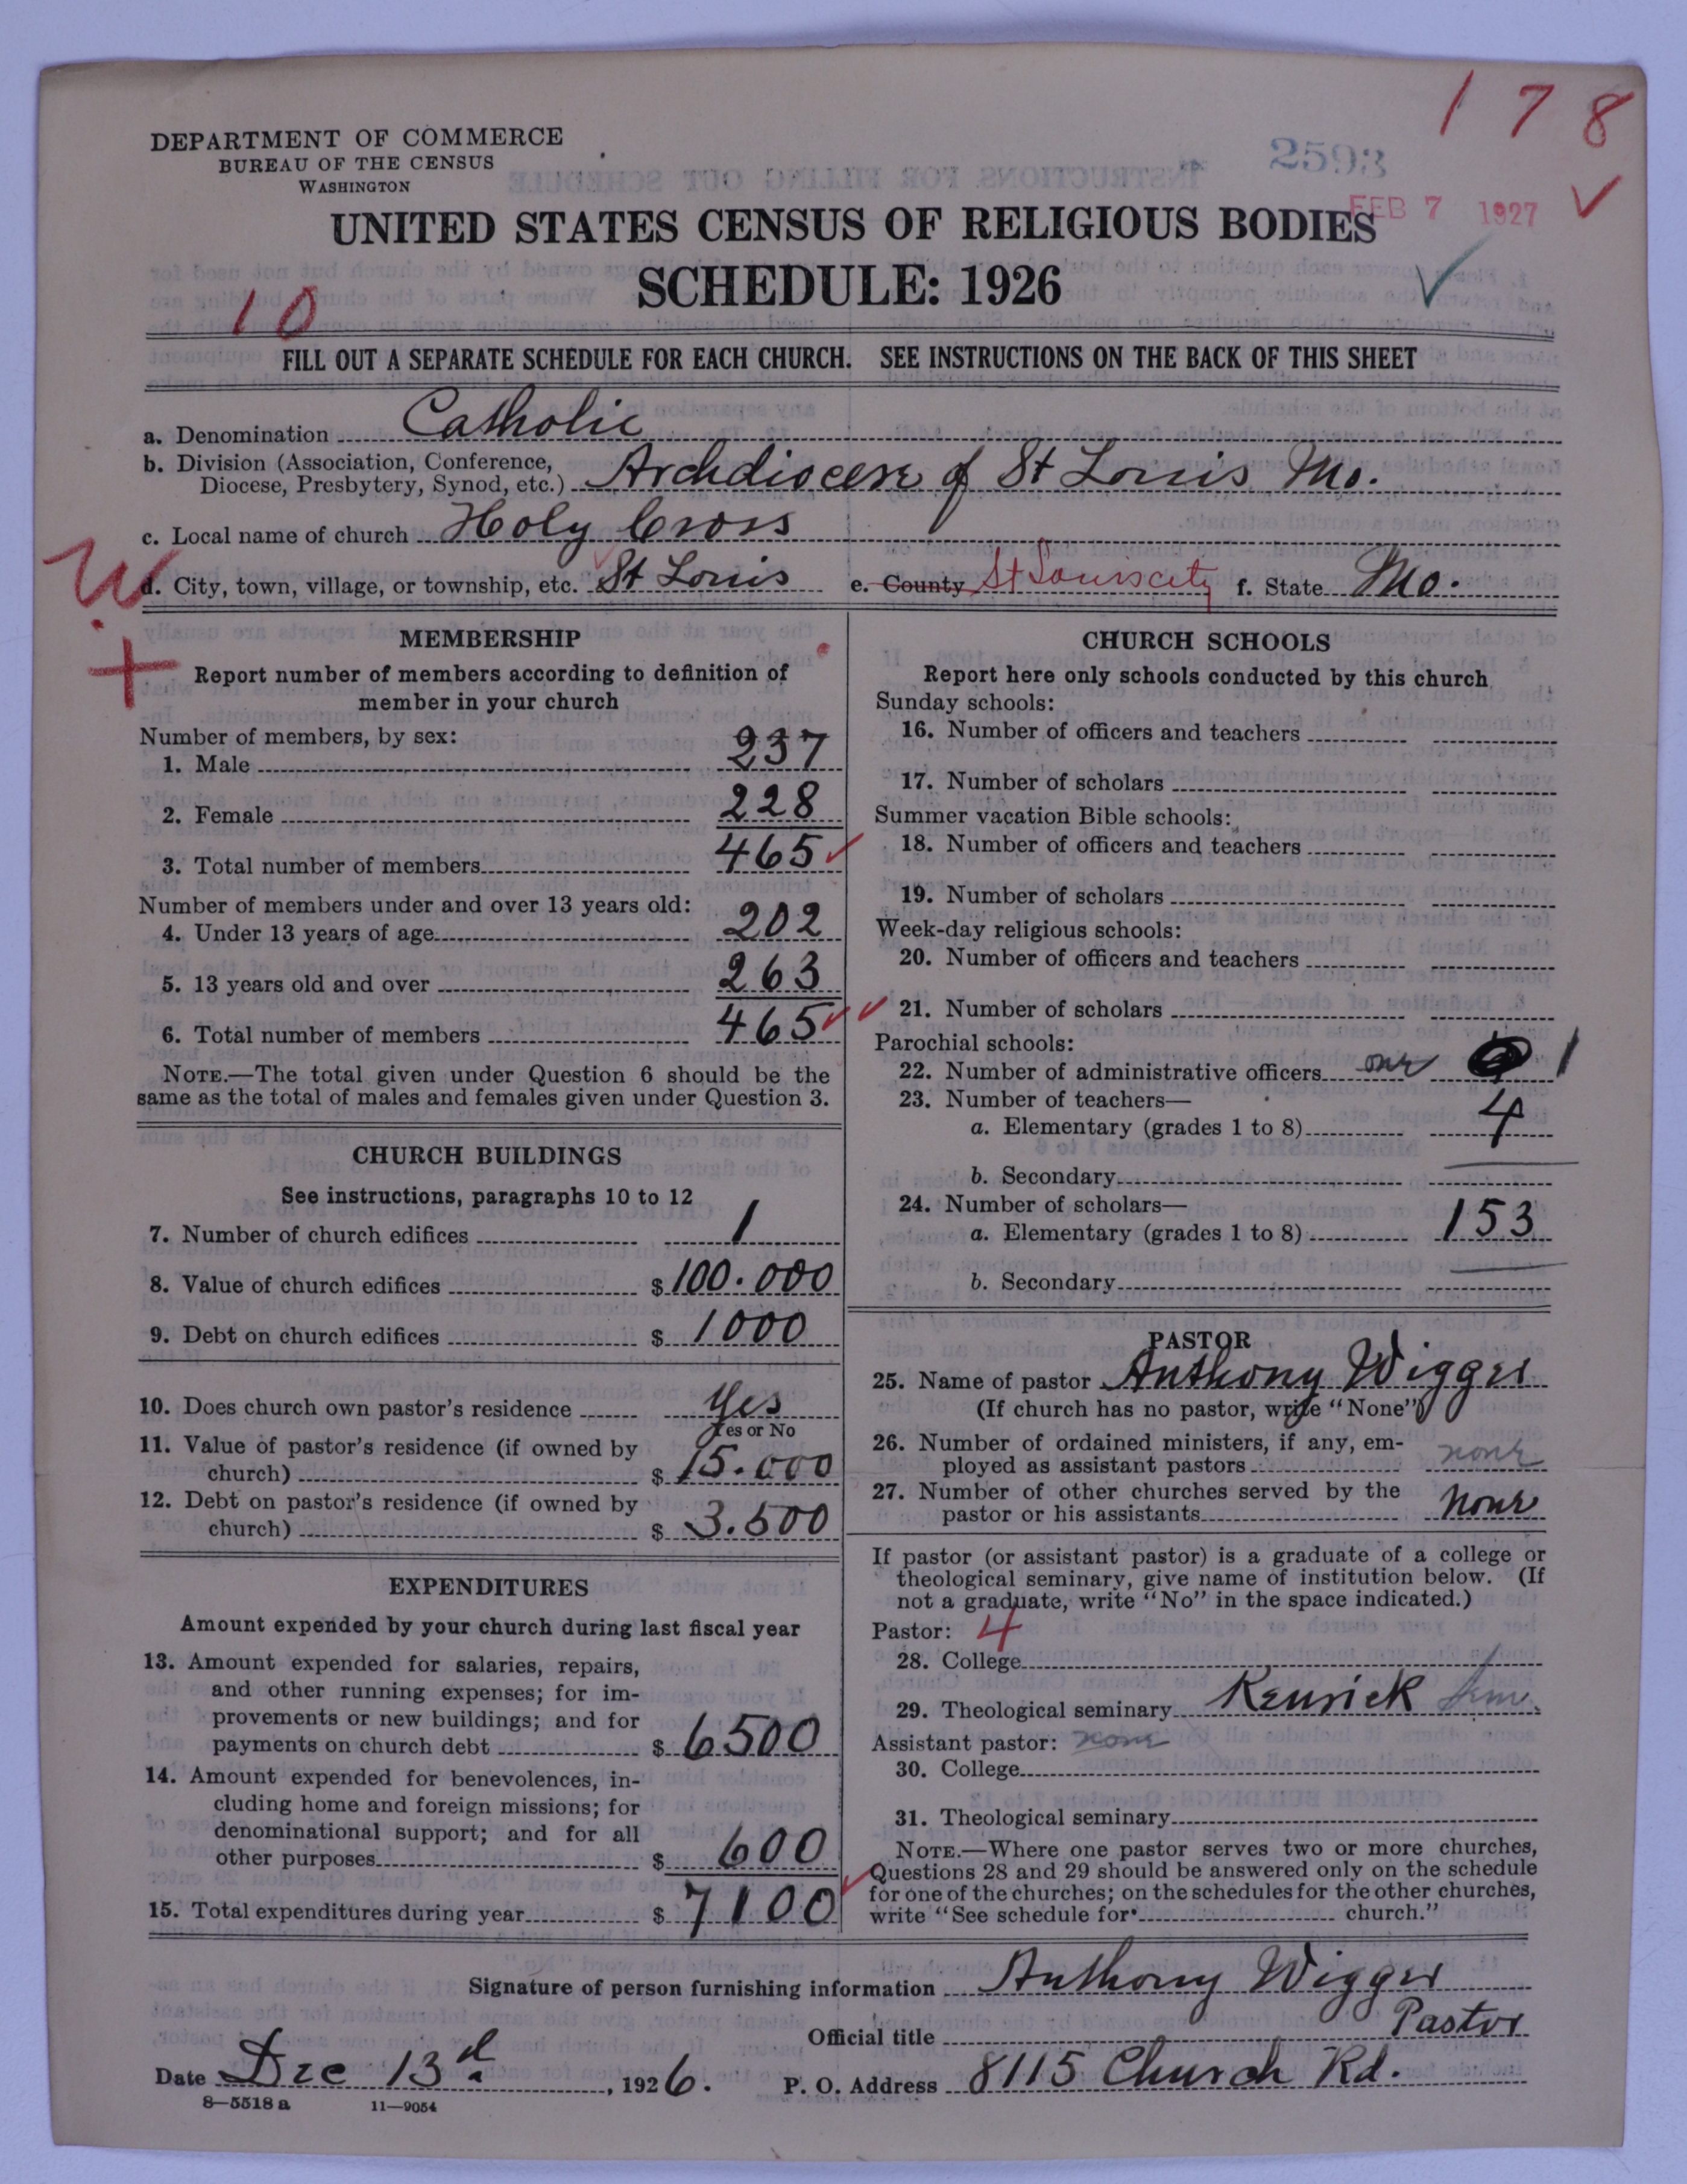 178
DEPARTMENT OF COMMERCE
BUREAU OF THE CENSUS
WASHINGTON
2593
FEB 7 1927
UNITED STATES CENSUS OF RELIGIOUS BODIES
SCHEDULE: 1926
10
FILL OUT A SEPARATE SCHEDULE FOR EACH CHURCH. SEE INSTRUCTIONS ON THE BACK OF THIS SHEET
a. Denomination Catholic
b. Division (Association, Conference,
Diocese, Presbytery, Synod, etc.) Archdiocese of St Louis Mo.
c. Local name of church Holy Cross
d. City, town, village, or township, etc. St Louis e. County St Louis city f. State Mo.
MEMBERSHIP
Report number of members according to definition of
member in your church
Number of members, by sex:
1. Male 237
2. Female 228
3. Total number of members 465
Number of members under and over 13 years old:
4. Under 13 years of age 202
5. 13 years old and over 263
6. Total number of members 465
NOTE.—The total given under Question 6 should be the
same as the total of males and females given under Question 3.
CHURCH BUILDINGS
See instructions, paragraphs 10 to 12
7. Number of church edifices 1
8. Value of church edifices $ 100.000
9. Debt on church edifices $ 1000
10. Does church own pastor's residence Yes
Yes or No
11. Value of pastor's residence (if owned by
church) $ 15.000
12. Debt on pastor's residence (if owned by
church) $ 3.500
EXPENDITURES
Amount expended by your church during last fiscal year
13. Amount expended for salaries, repairs,
and other running expenses; for im-
provements or new buildings; and for
payments on church debt $ 6500
14. Amount expended for benevolences, in-
cluding home and foreign missions; for
denominational support; and for all
other purposes $ 600
15. Total expenditures during year $ 7100
CHURCH SCHOOLS
Report here only schools conducted by this church
Sunday schools:
16. Number of officers and teachers
17. Number of scholars
Summer vacation Bible schools:
18. Number of officers and teachers
19. Number of scholars
Week-day religious schools:
20. Number of officers and teachers
21. Number of scholars
Parochial schools:
22. Number of administrative officers one 1
23. Number of teachers—
a. Elementary (grades 1 to 8) 4
b. Secondary
24. Number of scholars—
a. Elementary (grades 1 to 8) 153
b. Secondary
PASTOR
25. Name of pastor Anthony Wigger
(If church has no pastor, write "None")
26. Number of ordained ministers, if any, em-
ployed as assistant pastors none
27. Number of other churches served by the
pastor or his assistants None
If pastor (or assistant pastor) is a graduate of a college or
theological seminary, give name of institution below. (If
not a graduate, write "No" in the space indicated.)
Pastor: 4
28. College
29. Theological seminary Kenrick Sem.
Assistant pastor: none
30. College
31. Theological seminary
NOTE.—Where one pastor serves two or more churches,
Questions 28 and 29 should be answered only on the schedule
for one of the churches; on the schedules for the other churches,
write "See schedule for church."
Signature of person furnishing information Anthony Wigger
Official title Pastor
Date Dec 13d, 1926. P. O. Address 8115 Church Rd.
8—5518 a 11—9054